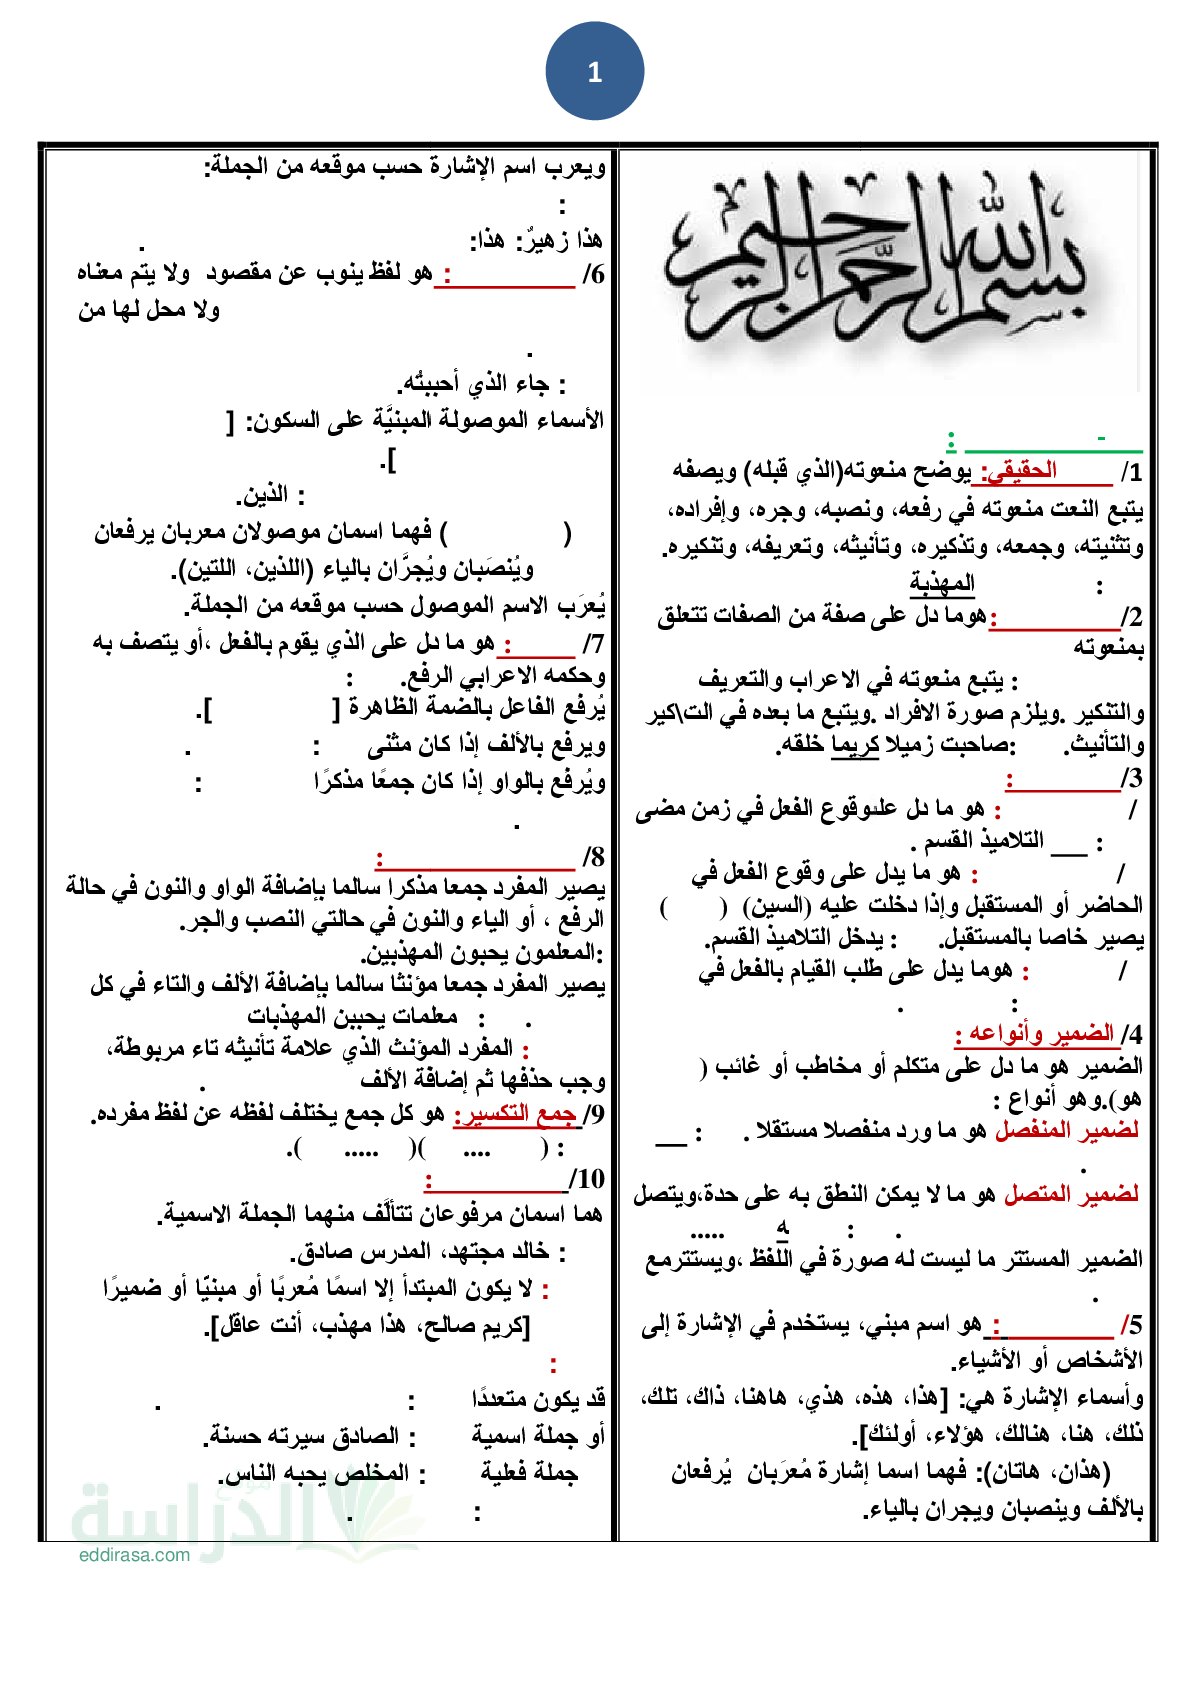 1
بسم الله الرحمن الرحيم
- :
1/ الحقيقي: يوضح منعوته(الذي قبله) ويصفه
يتبع النعت منعوته في رفعه، ونصبه، وجره، وإفراده،
وتثنيته، وجمعه، وتذكيره، وتأنيثه، وتعريفه، وتنكيره.
: المهذبة
2/ :هوما دل على صفة من الصفات تتعلق
بمنعوته
: يتبع منعوته في الاعراب والتعريف
والتنكير .ويلزم صورة الافراد .ويتبع ما بعده في الت\كير
والتأنيث. :صاحبت زميلا كريما خلقه.
3/ :
/ : هو ما دل علىوقوع الفعل في زمن مضى
: التلاميذ القسم .
/ : هو ما يدل على وقوع الفعل في
الحاضر أو المستقبل وإذا دخلت عليه (السين) ( )
يصير خاصا بالمستقبل. : يدخل التلاميذ القسم.
/ : هوما يدل على طلب القيام بالفعل في
: .
4/ الضمير وأنواعه :
الضمير هو ما دل على متكلم أو مخاطب أو غائب (
هو).وهو أنواع :
لضمير المنفصل هو ما ورد منفصلا مستقلا . :
.
لضمير المتصل هو ما لا يمكن النطق به على حدة،ويتصل
. : ه .....
الضمير المستتر ما ليست له صورة في اللفظ ،ويستترمع
.
5/ : هو اسم مبني، يستخدم في الإشارة إلى
الأشخاص أو الأشياء.
وأسماء الإشارة هي: [هذا، هذه، هذي، هاهنا، ذاك، تلك،
ذلك، هنا، هنالك، هؤلاء، أولئك].
(هذان، هاتان): فهما اسما إشارة مُعرَبان يُرفعان
بالألف وينصبان ويجران بالياء.
ويعرب اسم الإشارة حسب موقعه من الجملة:
:
هذا زهيرٌ: هذا: .
6/ : هو لفظ ينوب عن مقصود ولا يتم معناه
ولا محل لها من
.
: جاء الذي أحببتُه.
الأسماء الموصولة المبنيَّة على السكون: [
].
: الذين.
( ) فهما اسمان موصولان معربان يرفعان
ويُنْصَبان ويُجرَّان بالياء (اللذين، اللتين).
يُعرَب الاسم الموصول حسب موقعه من الجملة.
7/ : هو ما دل على الذي يقوم بالفعل ،أو يتصف به
وحكمه الاعرابي الرفع. :
يُرفع الفاعل بالضمة الظاهرة [ ].
ويرفع بالألف إذا كان مثنى : .
ويُرفع بالواو إذا كان جمعًا مذكرًا :
.
8/ :
يصير المفرد جمعا مذكرا سالما بإضافة الواو والنون في حالة
الرفع ، أو الياء والنون في حالتي النصب والجر.
:المعلمون يحبون المهذبين.
يصير المفرد جمعا مؤنثا سالما بإضافة الألف والتاء في كل
. : معلمات يحببن المهذبات
: المفرد المؤنث الذي علامة تأنيثه تاء مربوطة،
وجب حذفها ثم إضافة الألف .
9/ جمع التكسير: هو كل جمع يختلف لفظه عن لفظ مفرده.
: ( .... )( ..... ).
10/ :
هما اسمان مرفوعان تتألَّف منهما الجملة الاسمية.
: خالد مجتهد، المدرس صادق.
: لا يكون المبتدأ إلا اسمًا مُعربًا أو مبنيّا أو ضميرًا
[كريم صالح، هذا مهذب، أنت عاقل].
:
قد يكون متعددًا : .
أو جملة اسمية : الصادق سيرته حسنة.
جملة فعلية : المخلص يحبه الناس.
: .
موقع الدراسة
eddirasa.com